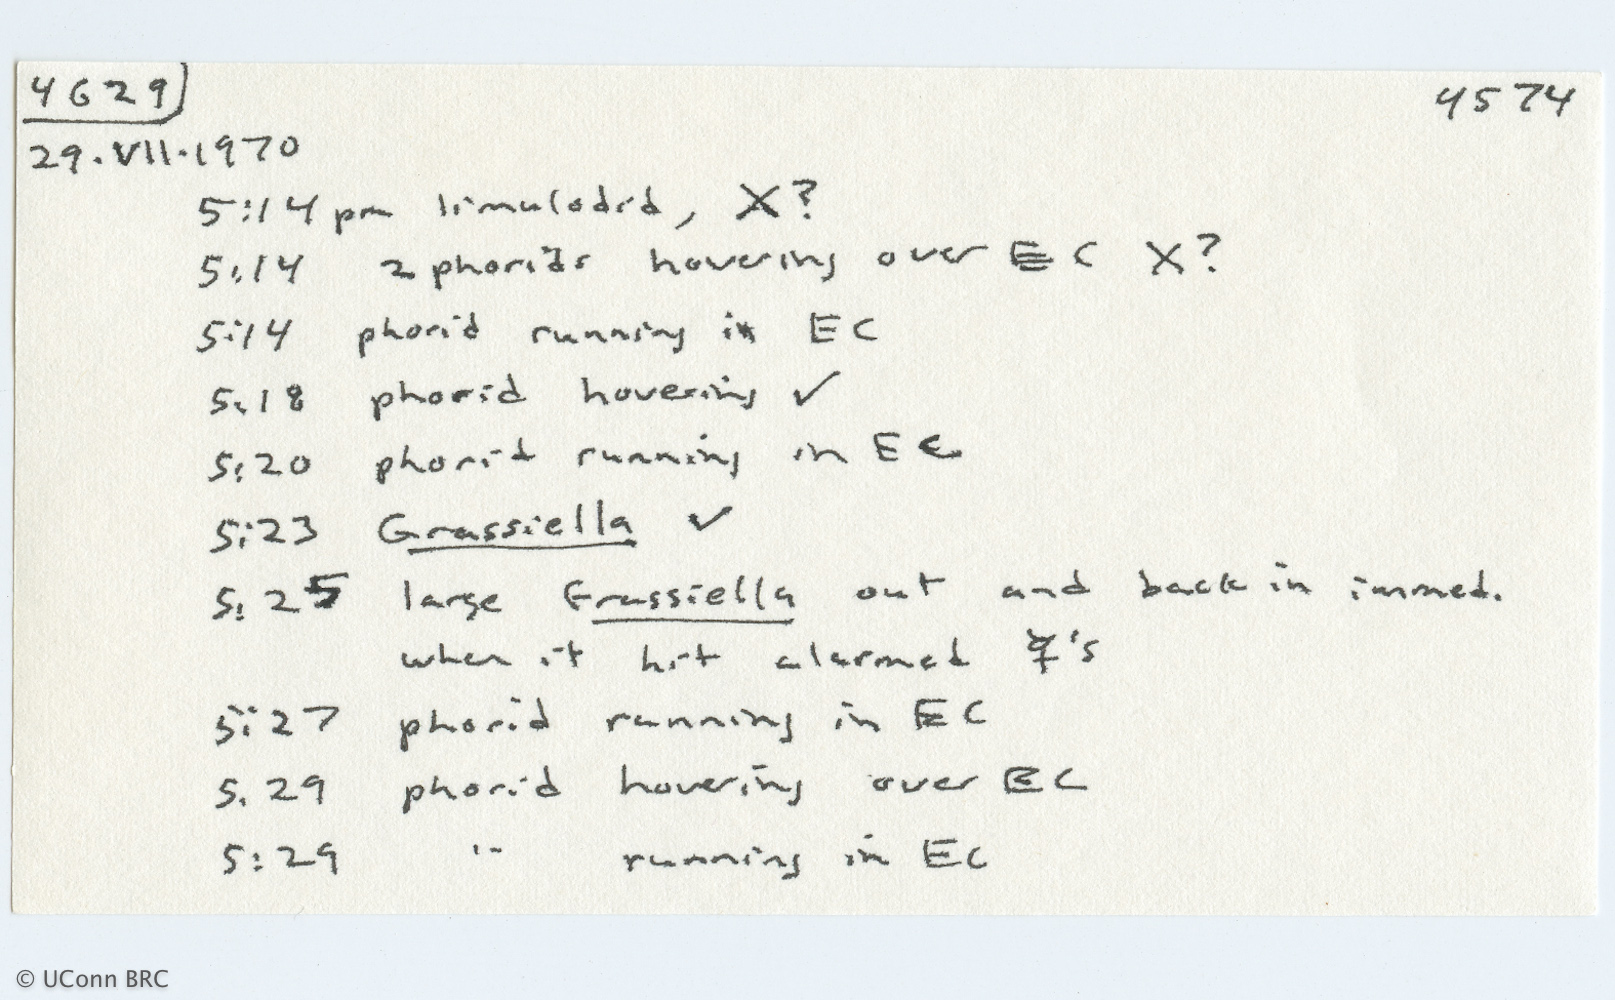 4629 4574
29.VII.1970
5:14 pm limulodid, X?
5:14 2 phorids hovering over EC X?
5:14 phorid running in EC
5:18 phorid hovering ✓
5:20 phorid running in EC
5:23 Grassiella ✓
5:25 large Grassiella out and back in immed.
when it hit alarmed ☿'s
5:27 phorid running in EC
5:29 phorid hovering over EC
5:29 " running in EC
© UConn BRC